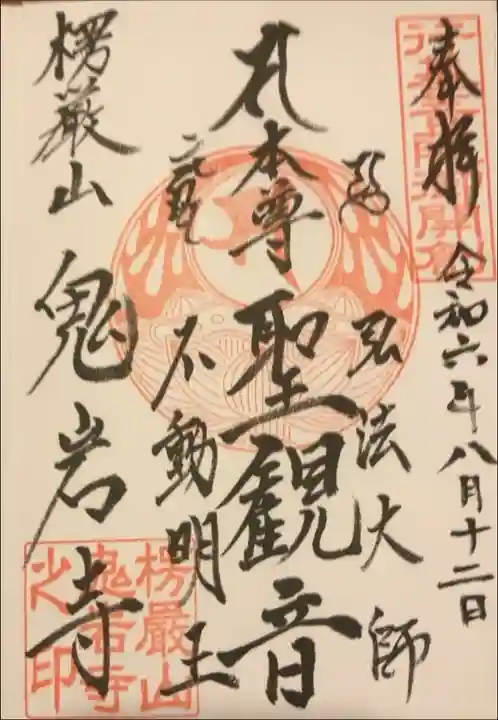 奉拝 令和六年八月十二日
弘法大師
本尊 聖観音
不動明王
楞厳山 鬼岩寺
楞嚴山
鬼岩寺
之印